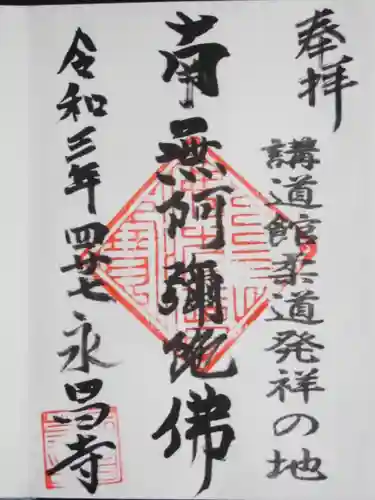 奉拝
講道館柔道発祥の地
南無阿彌陀佛
令和三年 四 廿七
永昌寺